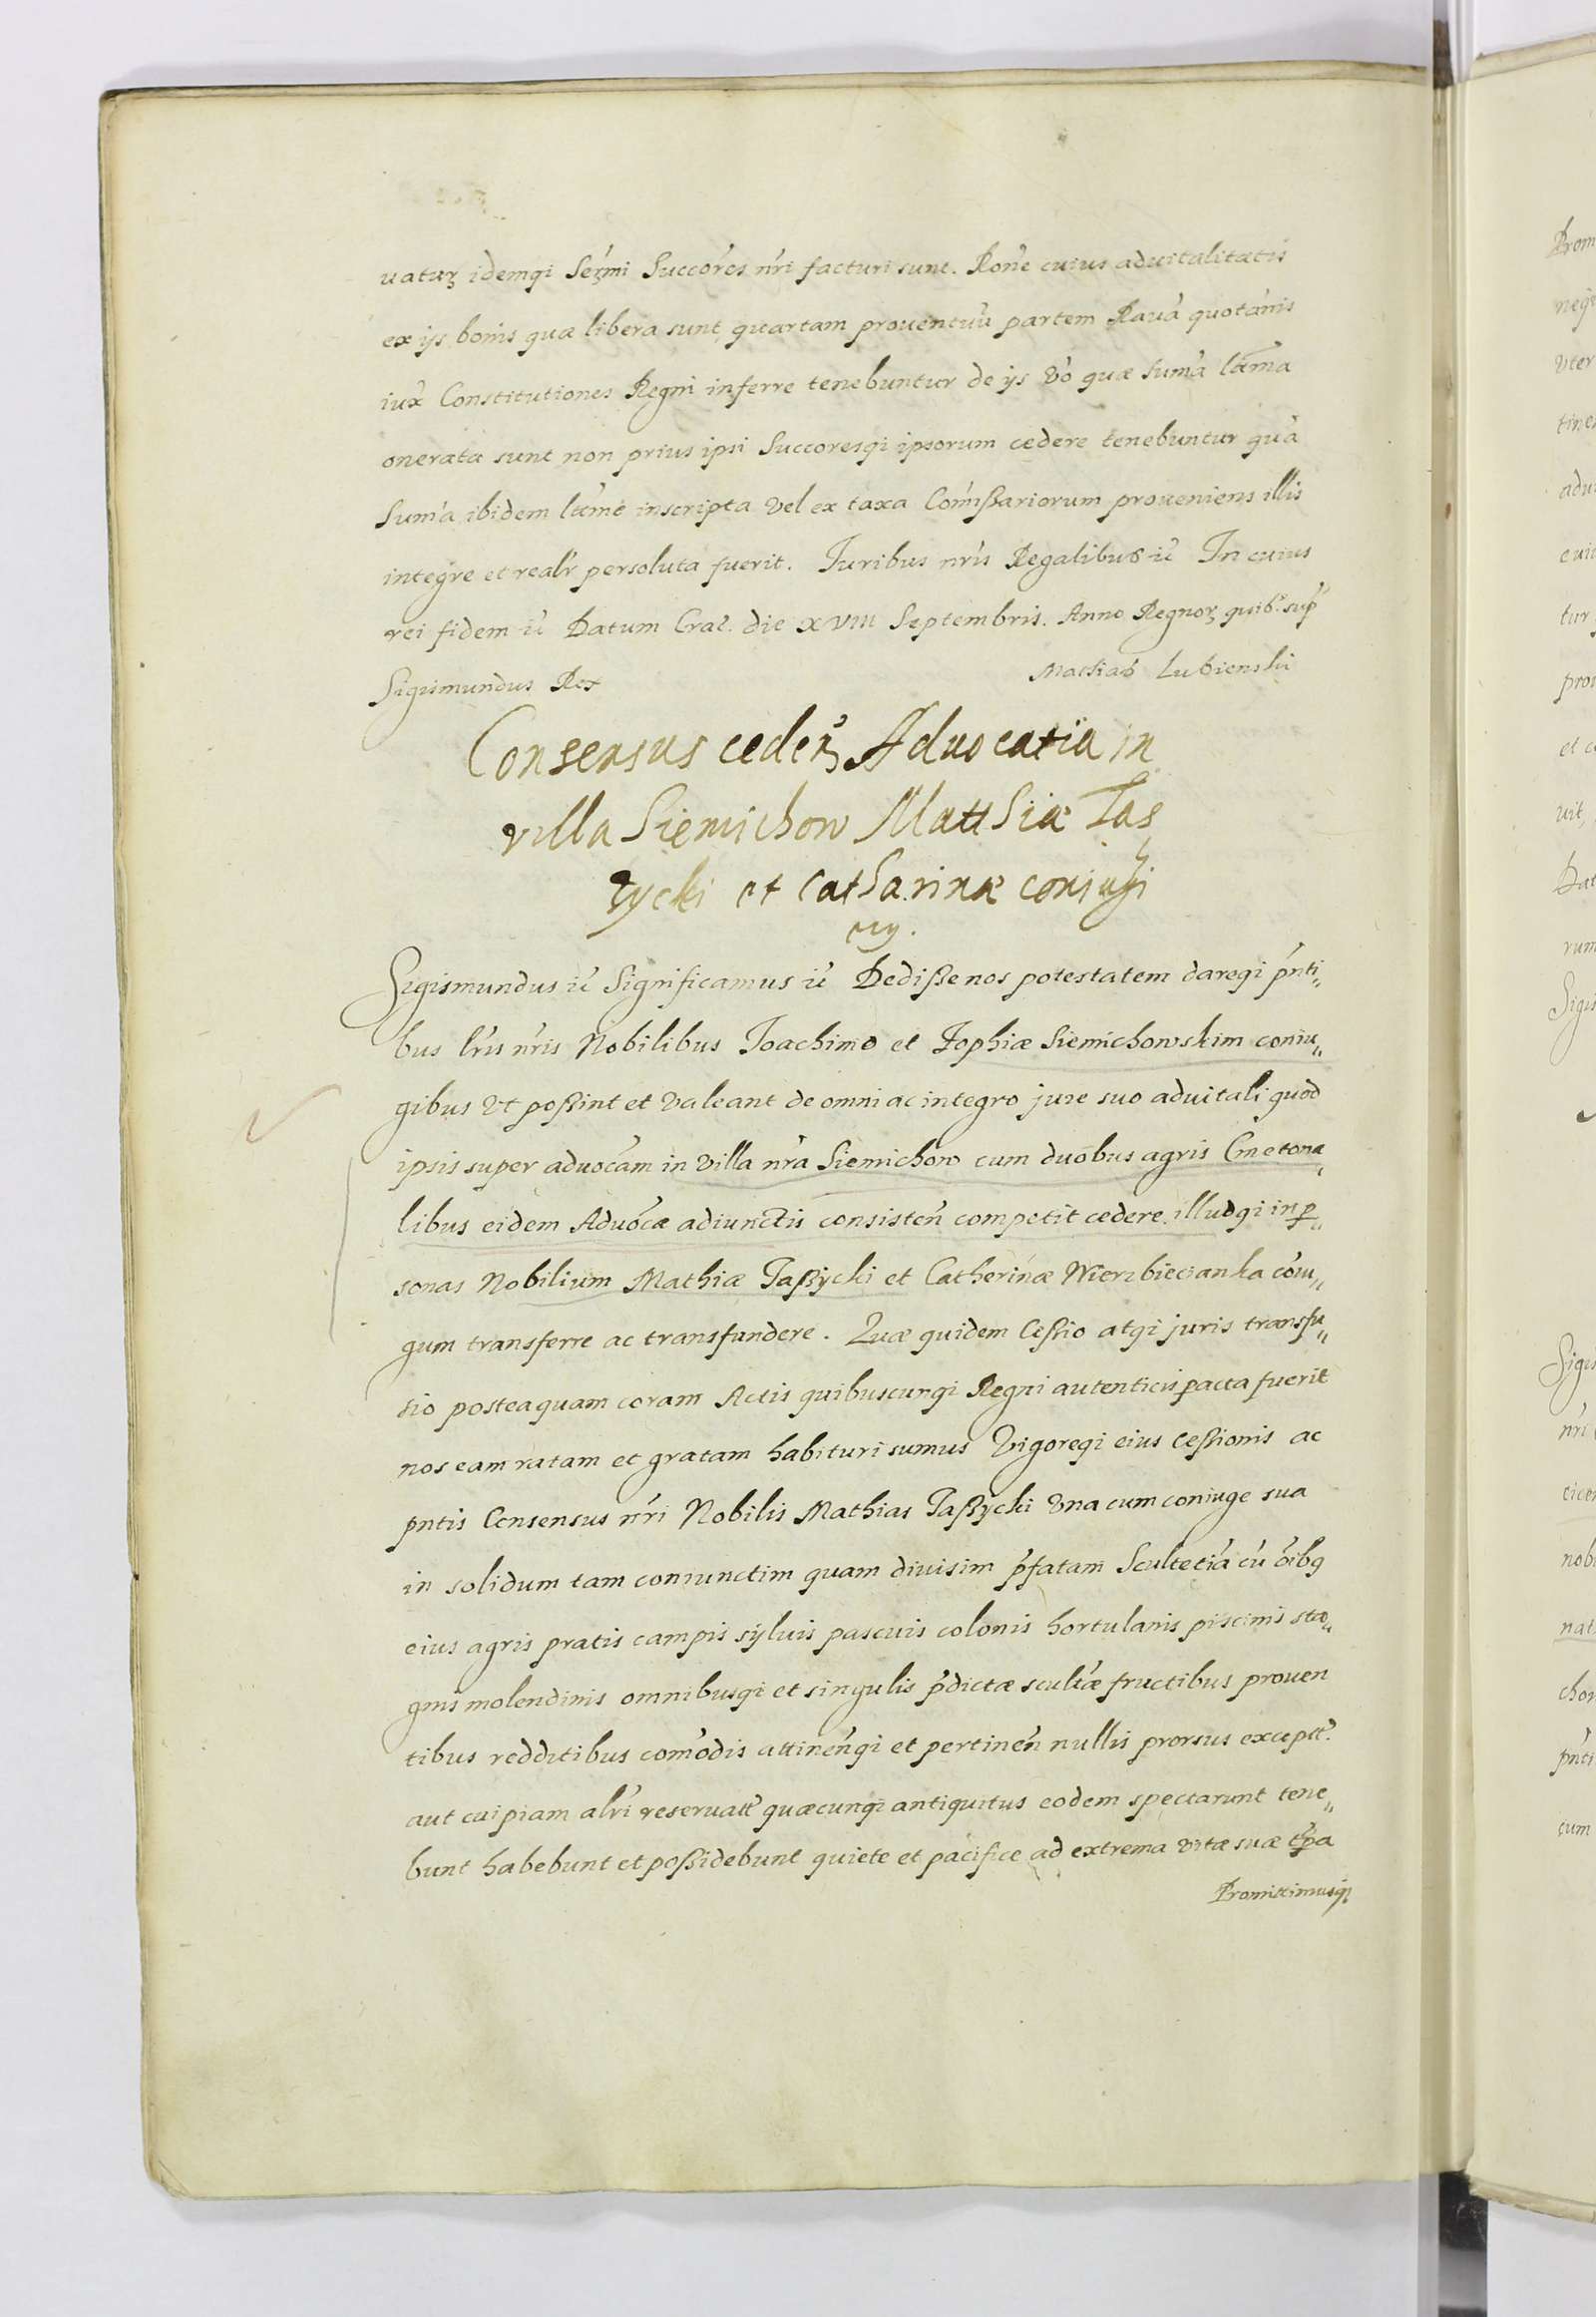 uaturꝫ idemqi Serꝫmi Succores nri facturi sunt. Rone cuius aduitalitatis
ex ijs bonis quæ libera sunt quartam prouentuũ partem Rauã quotanis
iux Constitutiones Regni inferre tenebuntur de ijs Vo quæ Suma ltima
onerata sunt non prius ipsi Succoresqi ipsorum cedere tenebuntur quã
Suma ibidem ltime inscripta Vel ex taxa Comißariorum proueniens illis
integre et realr persoluta fuerit. Iuribus nris Regalibus ic̃ In cuius
rei fidem ic̃ Datum Crac. die XVIII Septembris. Anno Regnorꝫ quib. sup
Sigismundus Rex
Mathias Lubienski
Consensus cedenꝫ Aduocatia in
villa Siemichow Matthiæ Tas
zycki et Catharinæ coniugi
eiꝯ.
Sigismundus ic̃ Significamus ic̃ Dediße nos potestatem dareqi pnti„
bus lris nris Nobilibus Ioachimo et Zophiæ Siemichowskim coniu„
gibus Vt poßint et Valeant de omni ac integro jure suo aduitali quod
ipsis super aduocam in Villa nra Siemichow cum duobus agris Cmetona„
libus eidem Aduocæ adiunctis consisten competit cedere illudqi in ꝑ„
sonas Nobilium Mathiæ Taßycki et Catherinæ Wierzbiecianka coiu„
gum transferre ac transfundere. Quæ quidem Ceßio atqi juris transfu„
sio posteaquam coram Actis quibuscunqi Regni autenticis pacta fuerit
nos eam ratam et gratam habituri sumus Vigoreqi eius Ceßionis ac
pntis Consensus nri Nobilis Mathias Taßycki Vna cum coniuge sua
in solidum tam coniunctim quam diuisim pfatam Scultetiã cũ oibꝯ
eius agris pratis campis syluis pascuis colonis hortulanis piscinis sta„
gnis molendinis omnibusqi et singulis pdictæ scultæ fructibus prouen
tibus redditibus comodis attinenqi et pertinen nullis prorsus exceptt.
aut cuipiam alri reseruatt quæcunqi antiquitus eodem spectarunt tene„
bunt habebunt et poßidebunt quiete et pacifice ad extrema vitæ suæ tꝑa
Promittimusqi